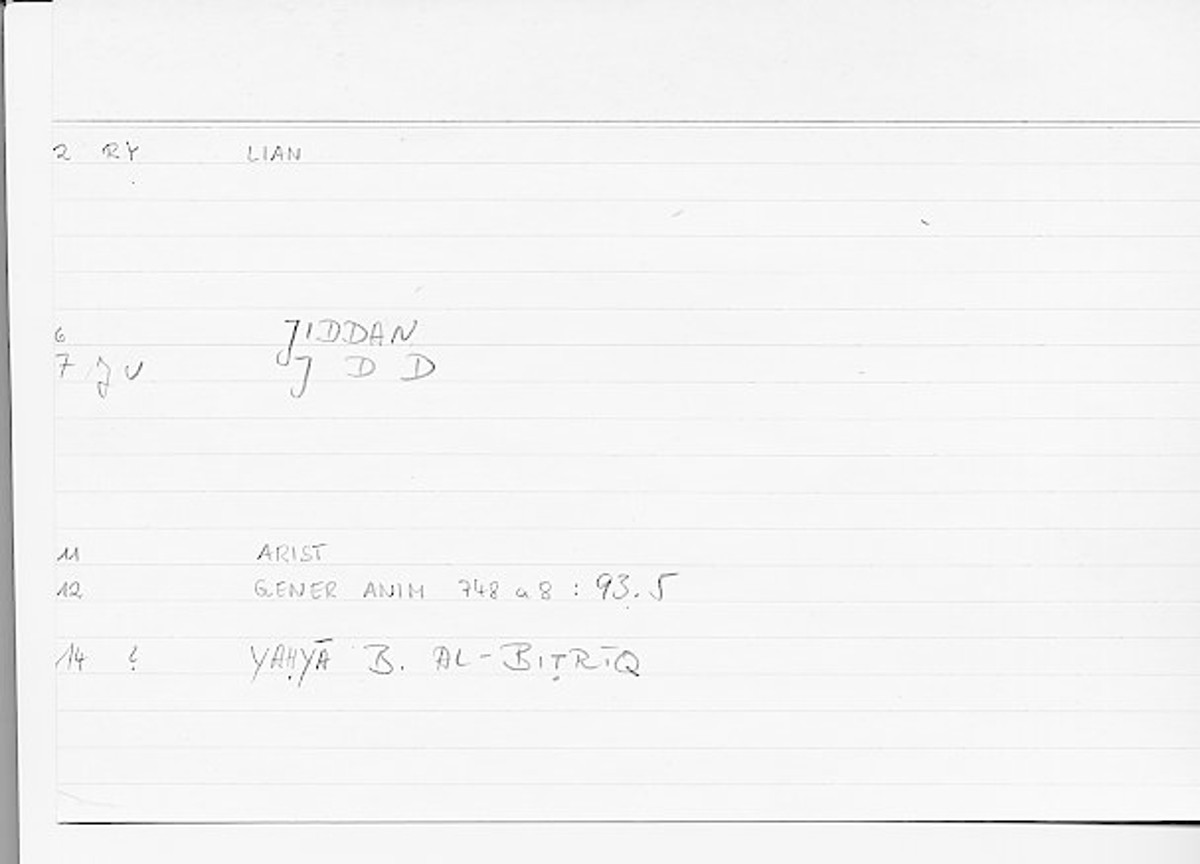 2 RY LIAN
6 JIDDAN
7 J v J D D
11 ARIST
12 GENER ANIM 748 a 8 : 93.5
14 YAḤYĀ B. AL-BIṬRĪQ